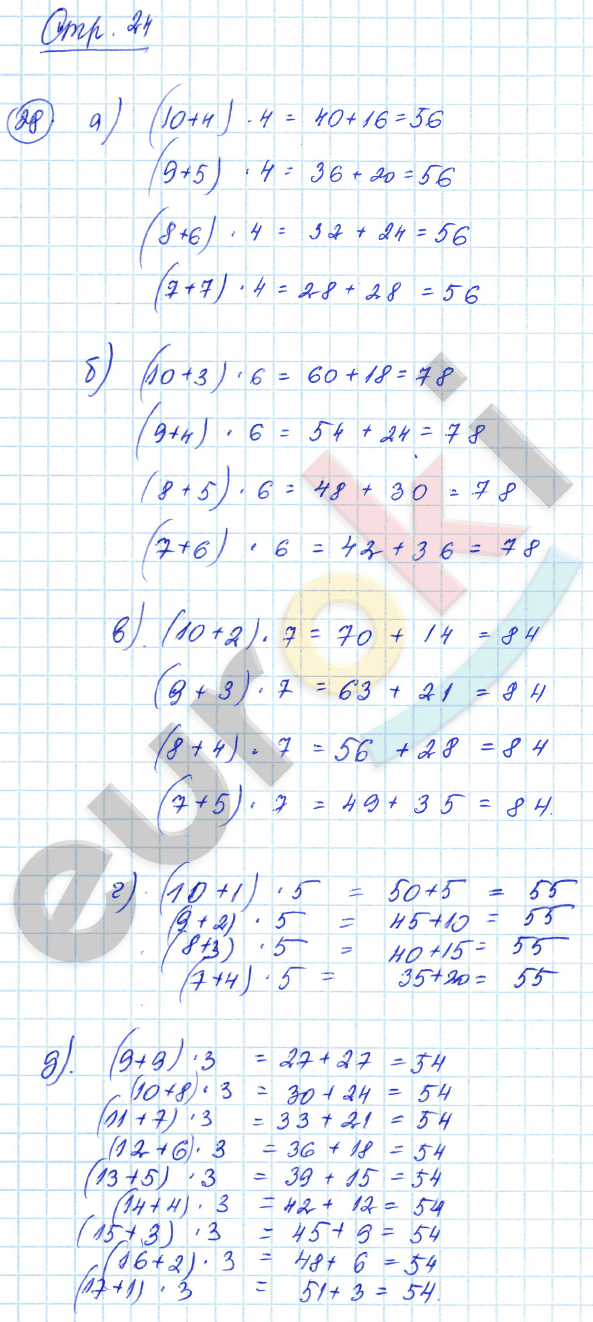 Стр. 24
28 а) (10+4) · 4 = 40+16=56
(9+5) · 4 = 36+20=56
(8+6) · 4 = 32 + 24 = 56
(7+7) · 4 = 28+28 = 56
б) (10+3) · 6 = 60+18=78
(9+4) · 6 = 54 + 24 = 78
(8+5) · 6 = 48 + 30 = 78
(7+6) · 6 = 42+36 = 78
в). (10+2) · 7 = 70 + 14 = 84
(9+3) · 7 = 63 + 21 = 84
(8+4) · 7 = 56 + 28 = 84
(7+5) · 7 = 49+35 = 84.
г). (10+1) · 5 = 50+5 = 55
(9+2) · 5 = 45+10 = 55
(8+3) · 5 = 40+15 = 55
(7+4) · 5 = 35+20 = 55
д). (9+9) · 3 = 27+27 = 54
(10+8) · 3 = 30+24 = 54
(11+7) · 3 = 33+21 = 54
(12+6) · 3 = 36+18 = 54
(13+5) · 3 = 39+15 = 54
(14+4) · 3 = 42+12 = 54
(15+3) · 3 = 45+9 = 54
(16+2) · 3 = 48+6 = 54
(17+1) · 3 = 51+3 = 54.
euroki